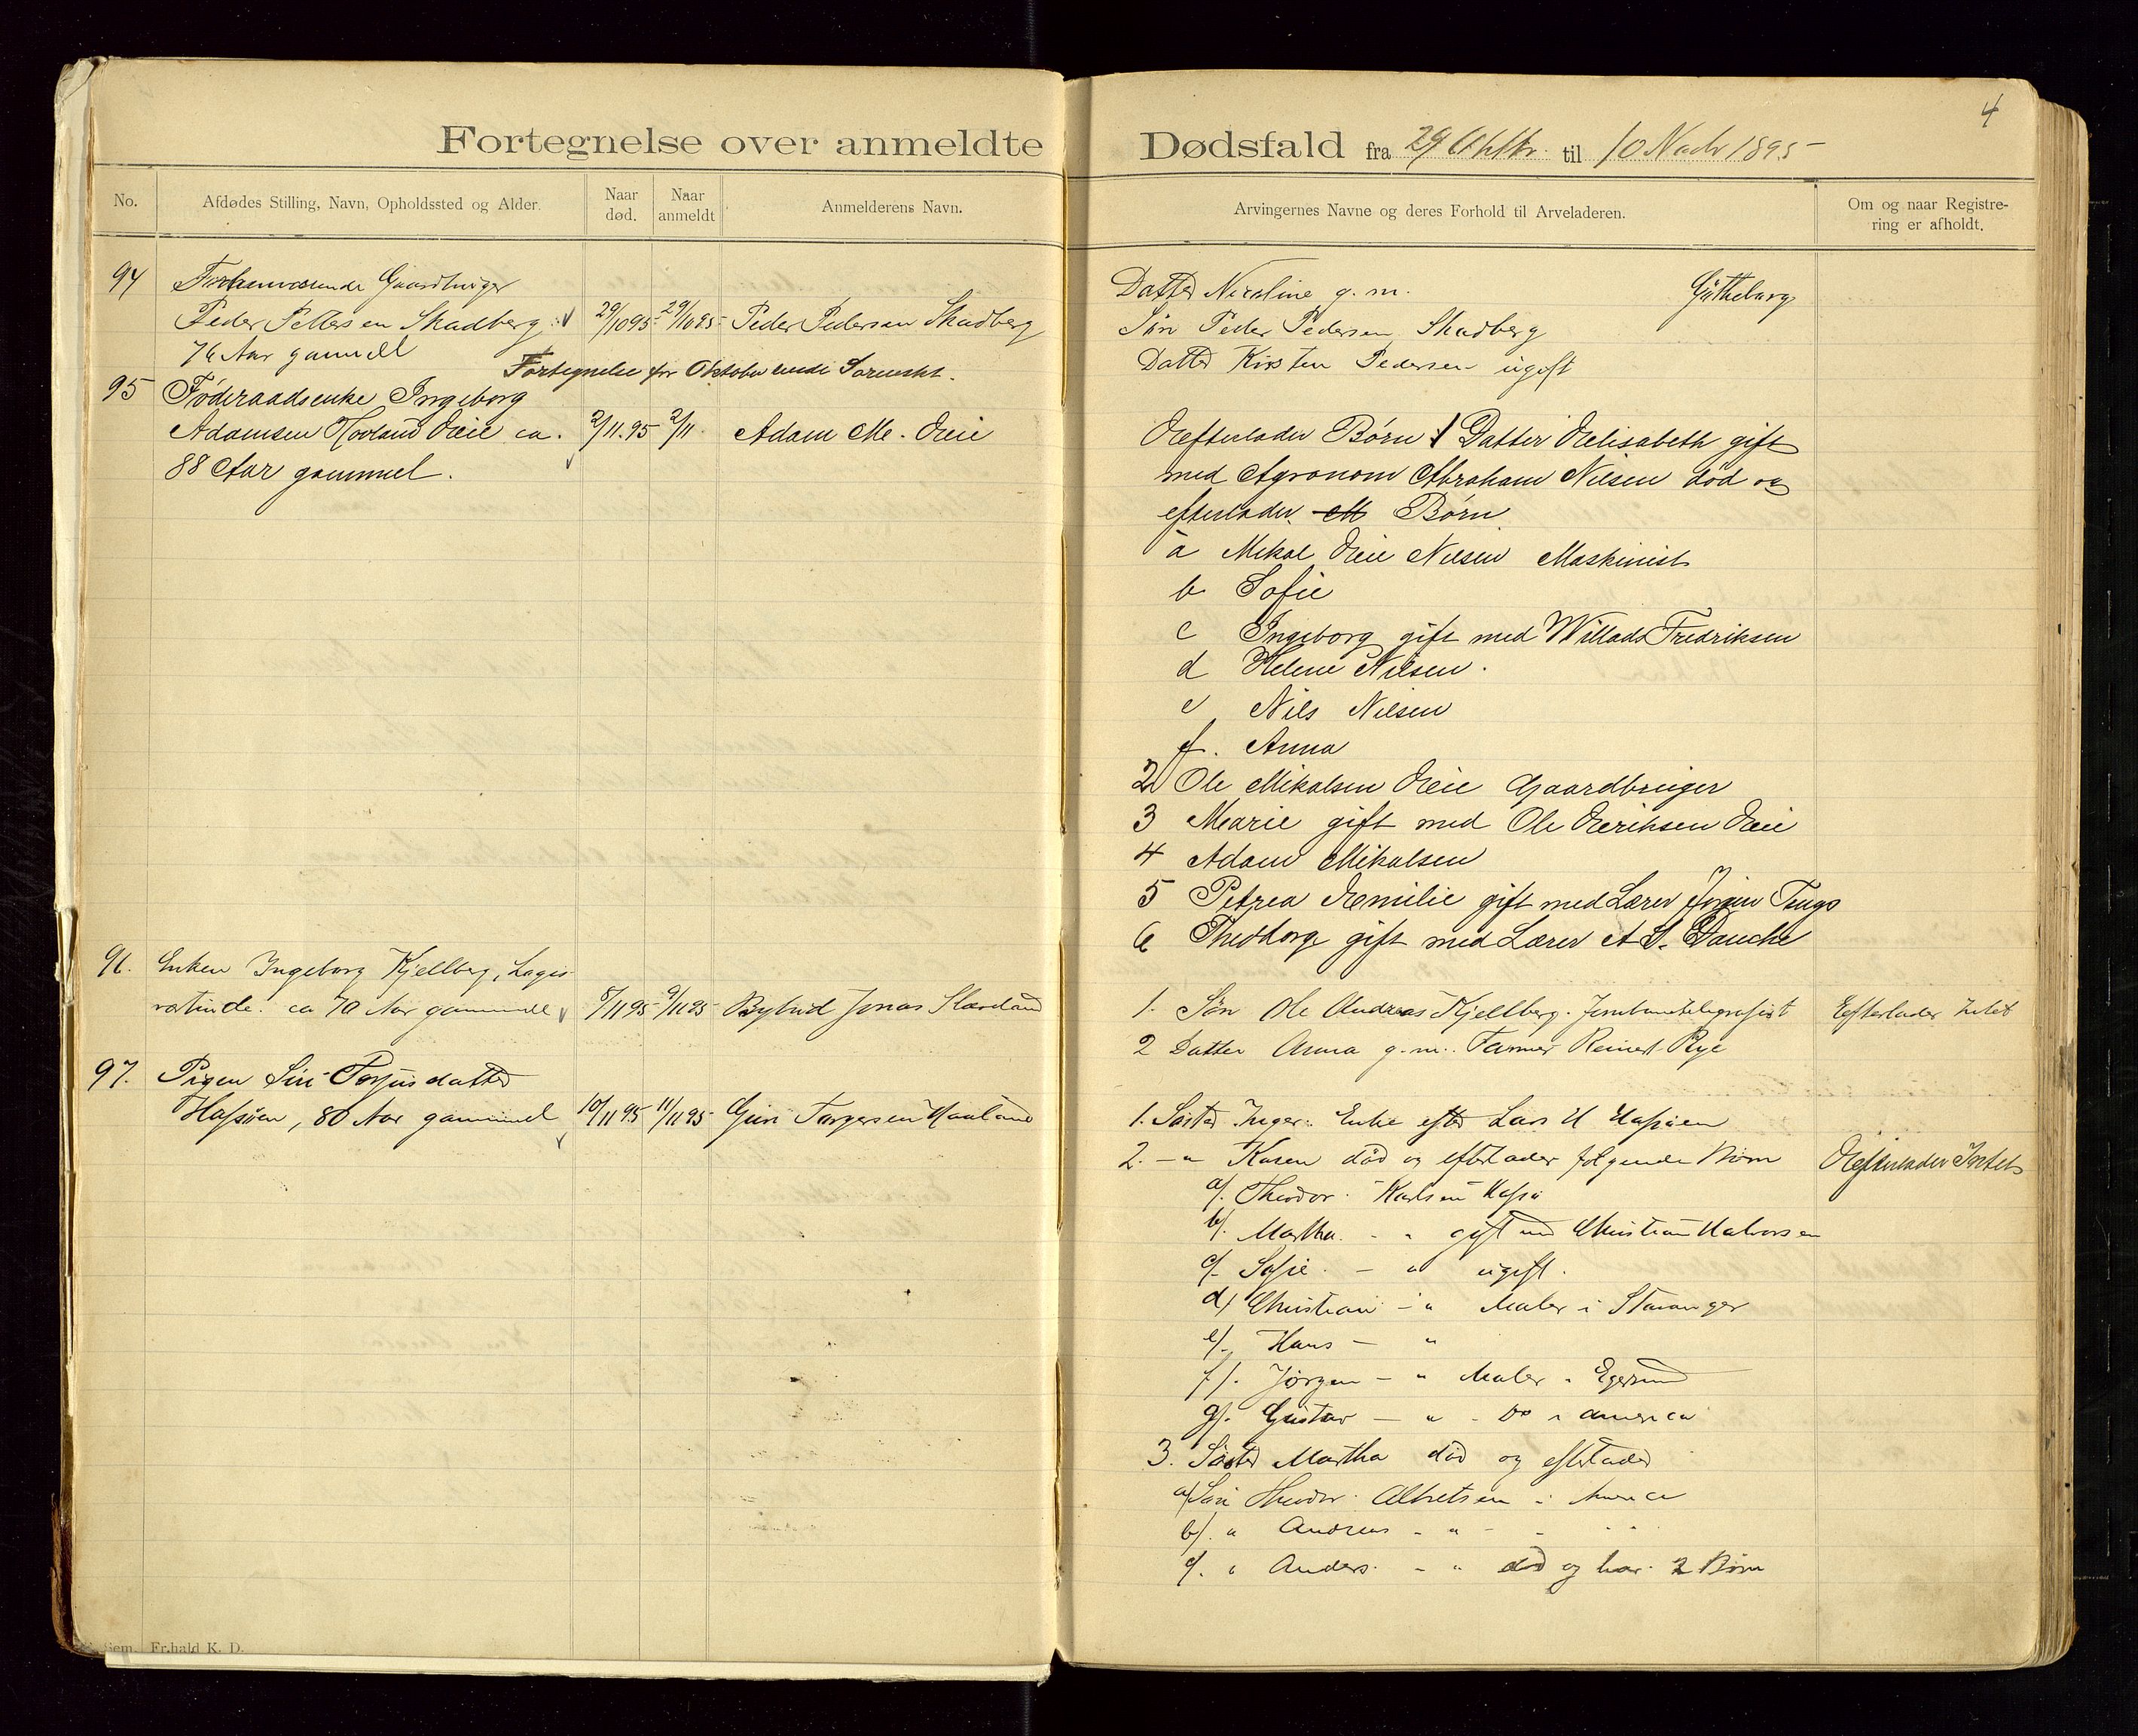 4
Fortegnelse over anmeldte Dødsfald fra 29 Oktbr. til 10 Novbr 1895
No.
Afdødes Stilling, Navn, Opholdssted og Alder.
Naar død.
Naar anmeldt
Anmelderens Navn.
Arvingernes Navne og deres Forhold til Arveladeren.
Om og naar Registre-
ring er afholdt.
94 Forhenværende Gaardbruger
Peder Pettersen Skadberg 29/10 95 29/10 95 Peder Pedersen Skadberg
76 Aar gammel
Datter Nicoline g. m. Gøtheborg
Søn Peder Pedersen Skadberg
Datter Kirsten Pedersen ugift
Fortegnelse for Oktober sendt Sorenskr.
95 Føderaadsenke Ingeborg
Adamsen Hovland Eeie ca. 2/11.95 2/11. Adam M. Eeie
88 Aar gammel.
Eefterlader Børn 1 Datter Eelisabeth gift
med Agronom Abraham Nilsen død og
efterlader et Børn
a Mikal Eeie Nilsen Maskinist
b Sofie
c Ingeborg gift med Willads Fredriksen
d Helene Nilsen.
e Nils Nilsen
f. Anna
2 Ole Mikalsen Eeie Gaardbruger
3 Marie gift med Ole Eeriksen Eeie
4 Adam Mikalsen
5 Petrea Eemilie gift med Lærer Jørgen Tengs
6 Thedborg gift med Lærer A S. Dauche
96. Enken Ingeborg Kjellberg, Logis
vertinde. ca 70 Aar gammel 8/11 95 9/11 95 Bybud Jonas
1. Søn Ole Andreas Kjellberg. Jernbanetelegrafist Efterlader Intet
2 Datter Anna g. m. Farmer Reinert Rye
97. Pigen Siri Torjusdatter
Hafsøen, 80 Aar gammel 10/11 95 11/11 95 Torgersen Haaland
1. Søster Inger. Enke efter Lars H Hafsøen
2. - " Karen død og efterlader følgende Børn Eefterlader Intet
a/. Theodor. Karlsen Hafsø
b/. Martha. - " gift med Christian Halvorsen
c/. Sofie. - " ugift.
d/ Christian - " Maler i Stavanger
e/. Hans - "
f/. Jørgen - " Maler " Egersund
g/. Gustav - " - Do i America
3. Søster Martha død og efterlader
a/ Søn Theodor. Albretsen i America
b/. " Andreas - " - - " "
c/. " Anders. - " død og har 2 Børn
Sem, Fr.hald K. D.